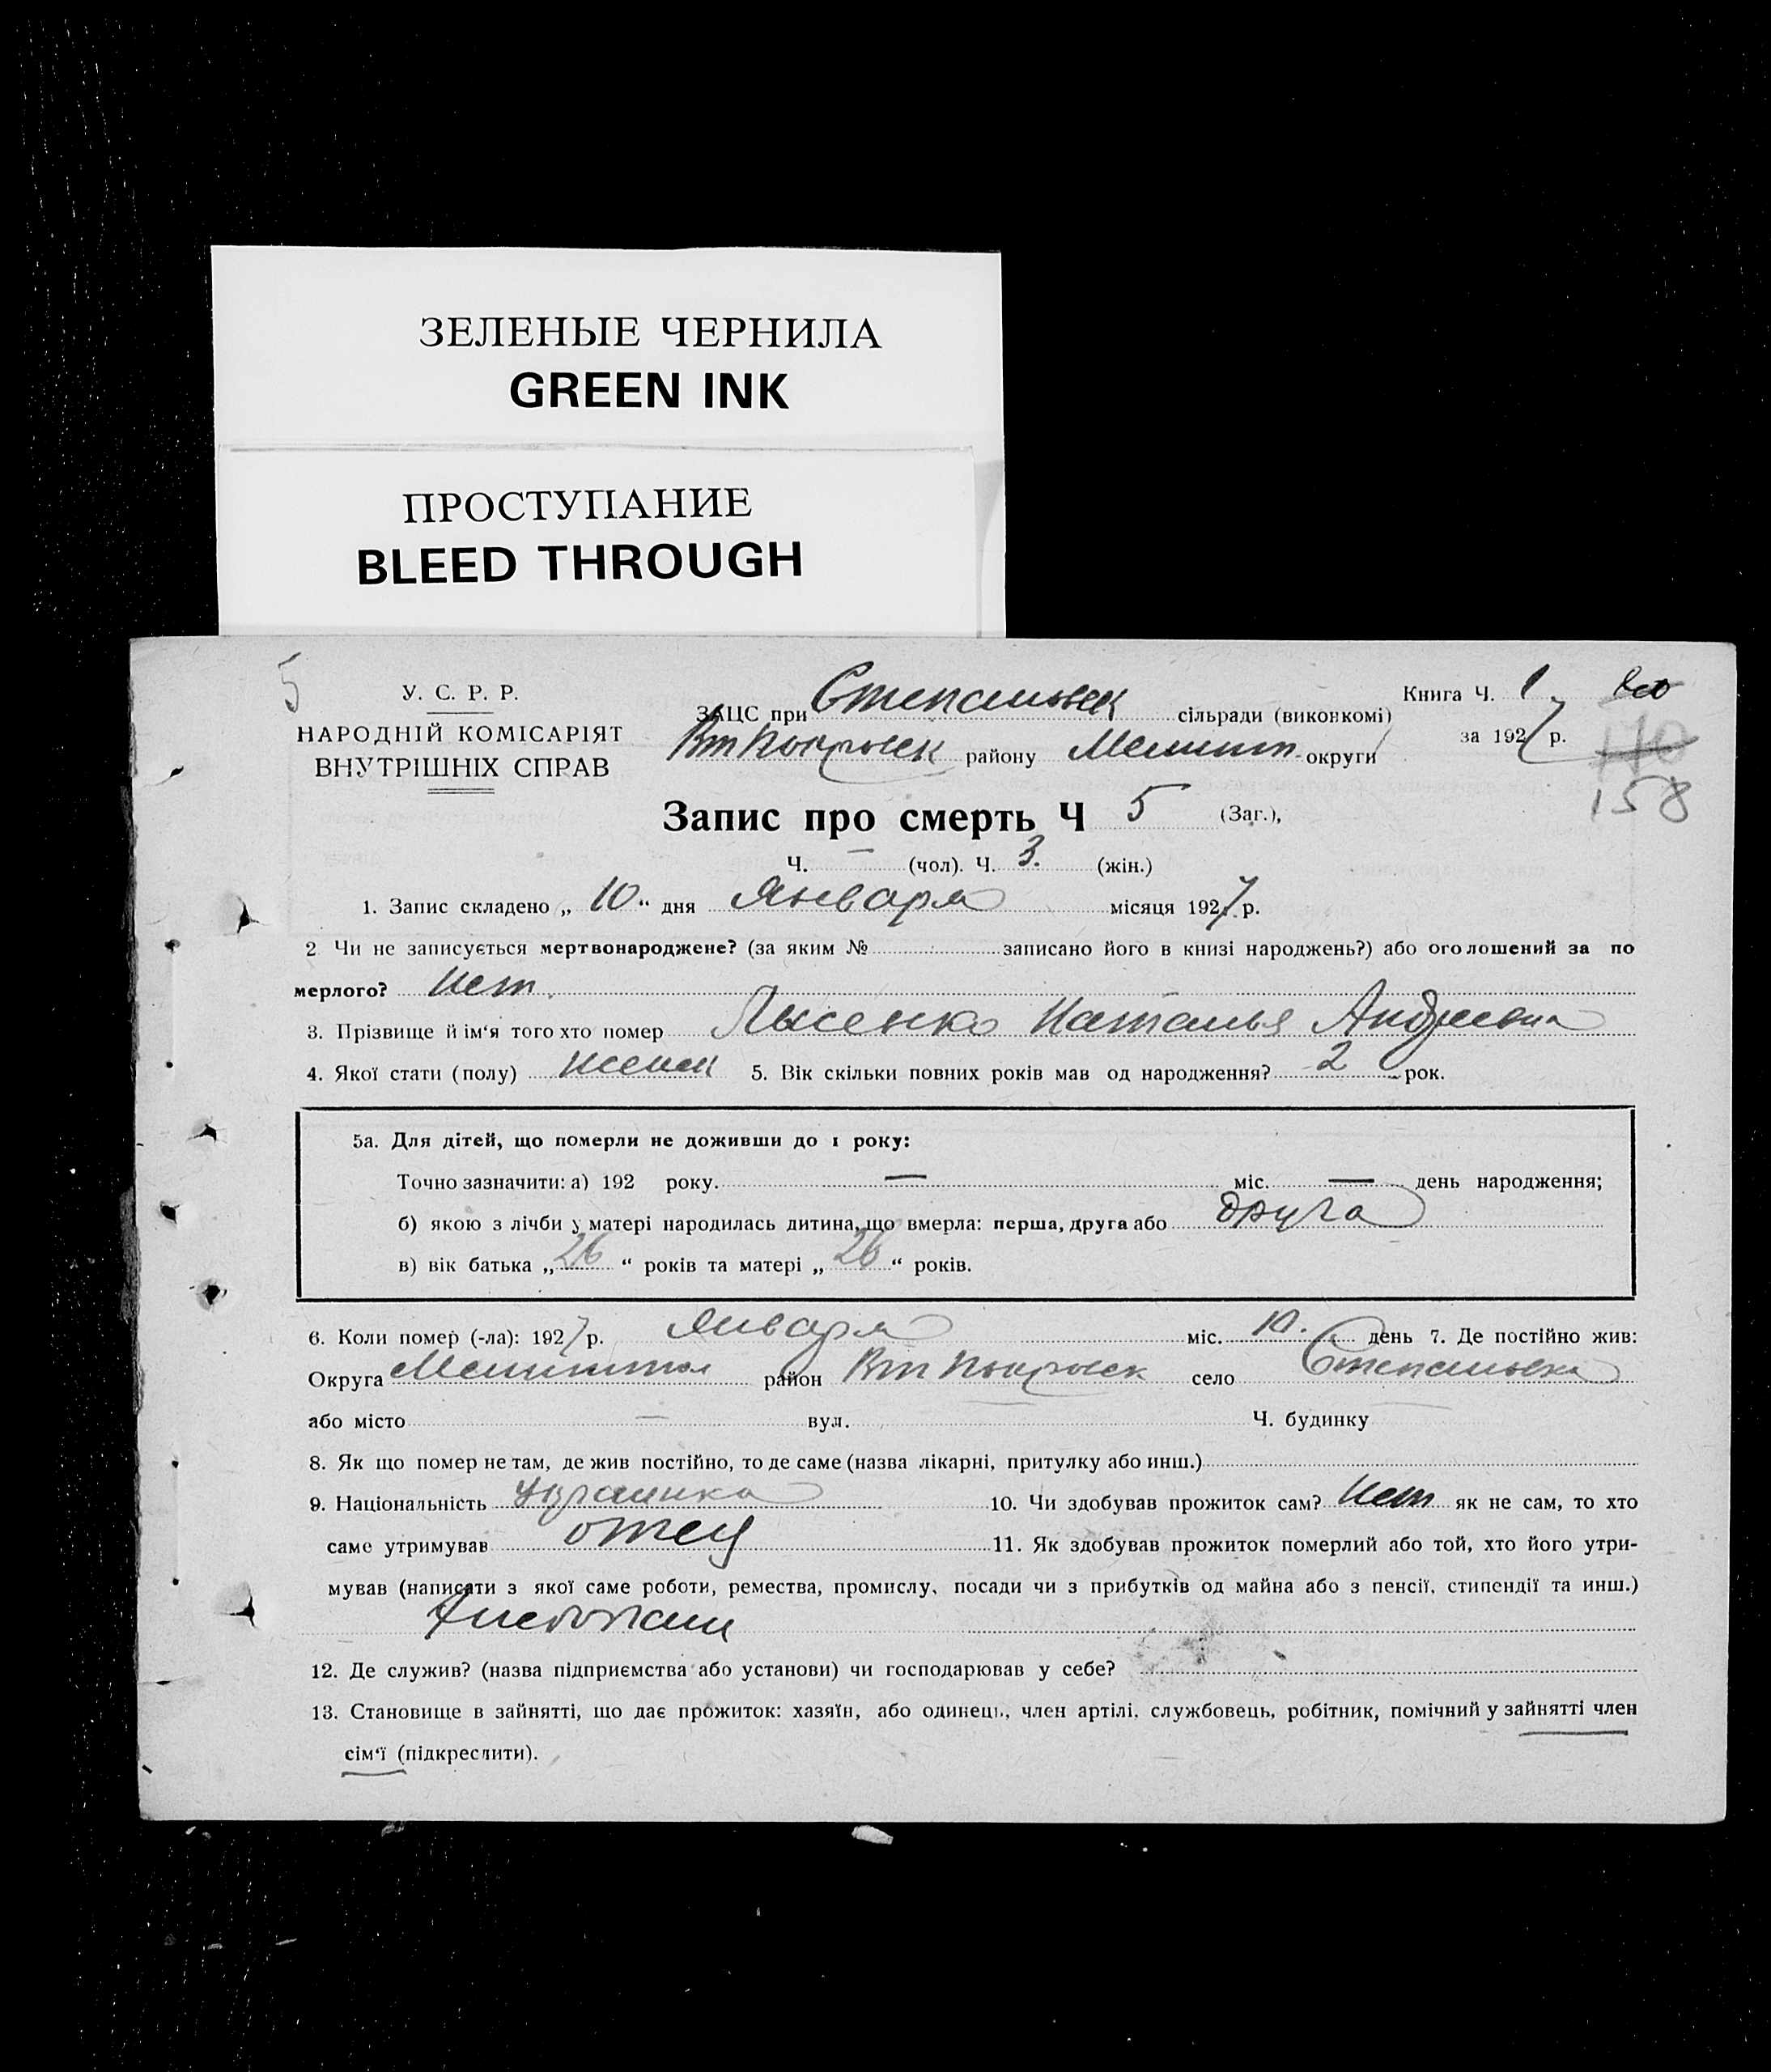 ЗЕЛЕНЫЕ ЧЕРНИЛА
GREEN INK
ПРОСТУПАНИЕ
BLEED THROUGH
5
У. С. Р. Р.
НАРОДНІЙ КОМІСАРІЯТ
ВНУТРІШНІХ СПРАВ
ЗАЦС при Степановск сільради (виконкомі)
Вт Покровск району Мелитоп округи
Книга Ч. 1
за 1927 р.
110
158
Запис про смерть Ч 5 (Заг.),
Ч. — (чол). Ч. 3. (жін.)
1. Запис складено „ 10 “ дня Января місяця 1927 р.
2 Чи не записується мертвонароджене? (за яким № записано його в книзі народжень?) або оголошений за по
мерлого? Нет.
3. Прізвище й ім‘я того хто помер Лысенко Наталья Андреевна
4. Якої стати (полу) женск 5. Вік скільки повних років мав од народження? 2 рок.
5а. Для дітей, що померли не доживши до 1 року:
Точно зазначити: а) 192 року. — міс. — день народження;
б) якою з лічби у матері народилась дитина, що вмерла: перша, друга або друга
в) вік батька „ 26 “ років та матері „ 26 “ років.
6. Коли помер (-ла): 1927 р. Января міс. 10. день 7. Де постійно жив:
Округа Мелитопол район Вт Покровск село Степановка
або місто — вул. Ч. будинку
8. Як що помер не там, де жив постійно, то де саме (назва лікарні, притулку або инш.)
9. Національність Украинка 10. Чи здобував прожиток сам? Нет як не сам, то хто
саме утримував отец 11. Як здобував прожиток померлий або той, хто його утри-
мував (написати з якої саме роботи, ремества, промислу, посади чи з прибутків од майна або з пенсії, стипендії та инш.)
Хлебопаш
12. Де служив? (назва підприємства або установи) чи господарював у себе?
13. Становище в зайнятті, що дає прожиток: хазяїн, або одинець, член артілі, службовець, робітник, помічний у зайнятті член
сім‘ї (підкреслити).